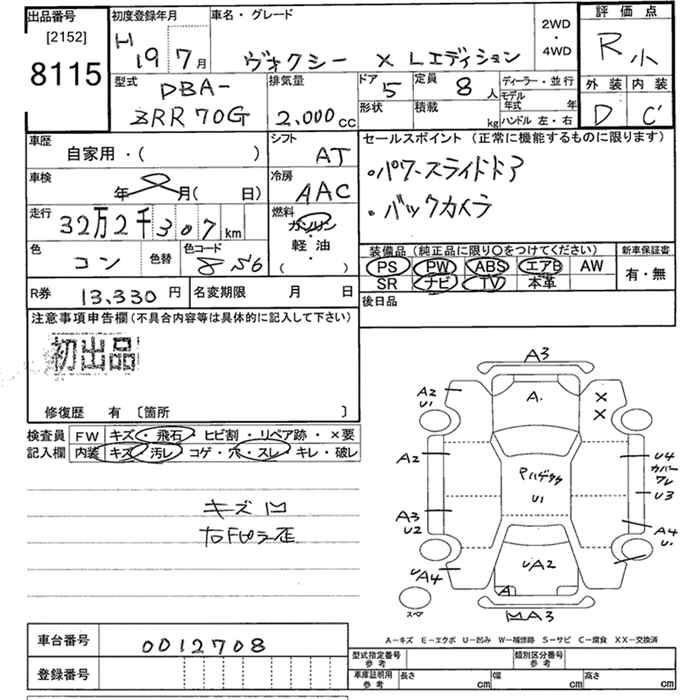 出品番号
[2152]
8115
初度登録年月
H 19 7月
車名・グレード
ヴォクシー X Lエディション
2WD
・
4WD
評価点
R 小
外装 内装
D C
型式
DBA-
ZRR70G
排気量
2.000cc
ドア 5
形状
定員 8人
積載 kg
ディーラー・並行
モデル年式 年
ハンドル 左・右
車歴
自家用・( )
シフト
AT
セールスポイント (正常に機能するものに限ります)
・パワースライドドア
・バックカメラ
車検
年 月( 日)
冷房
AAC
走行
32万2千307km
燃料
ガソリン
軽油
( ・ )
色
コン
色替
色コード
8S6
装備品(純正品に限り〇をつけてください)
PS PW ABS エアB AW
SR ナビ TV 本革
新車保証書
有・無
R券 13,330円
名変期限 月 日
後日品
注意事項申告欄(不具合内容等は具体的に記入して下さい)
初出品
修復歴 有 〔箇所 〕
検査員
記入欄
FW キズ・飛石・ヒビ割・リペア跡・×要
内装 キズ・汚レ・コゲ・穴・スレ・キレ・破レ
キズ凹
右Fピラ歪
A3
A2
U1
A.
X
X
A2
U4
カバー
ワレ
PハゲタタU1
U3
A3
U1
A4
U.
UA4
UA2
A
スペア
凹A3
A-キズ E-エクボ U-凹み W-補修跡 S-サビ C-腐食 XX-交換済
車台番号 0012708
登録番号
型式指定番号
参考
類別区分番号
参考
車庫証明用
参考
長さ cm
幅 cm
高さ cm